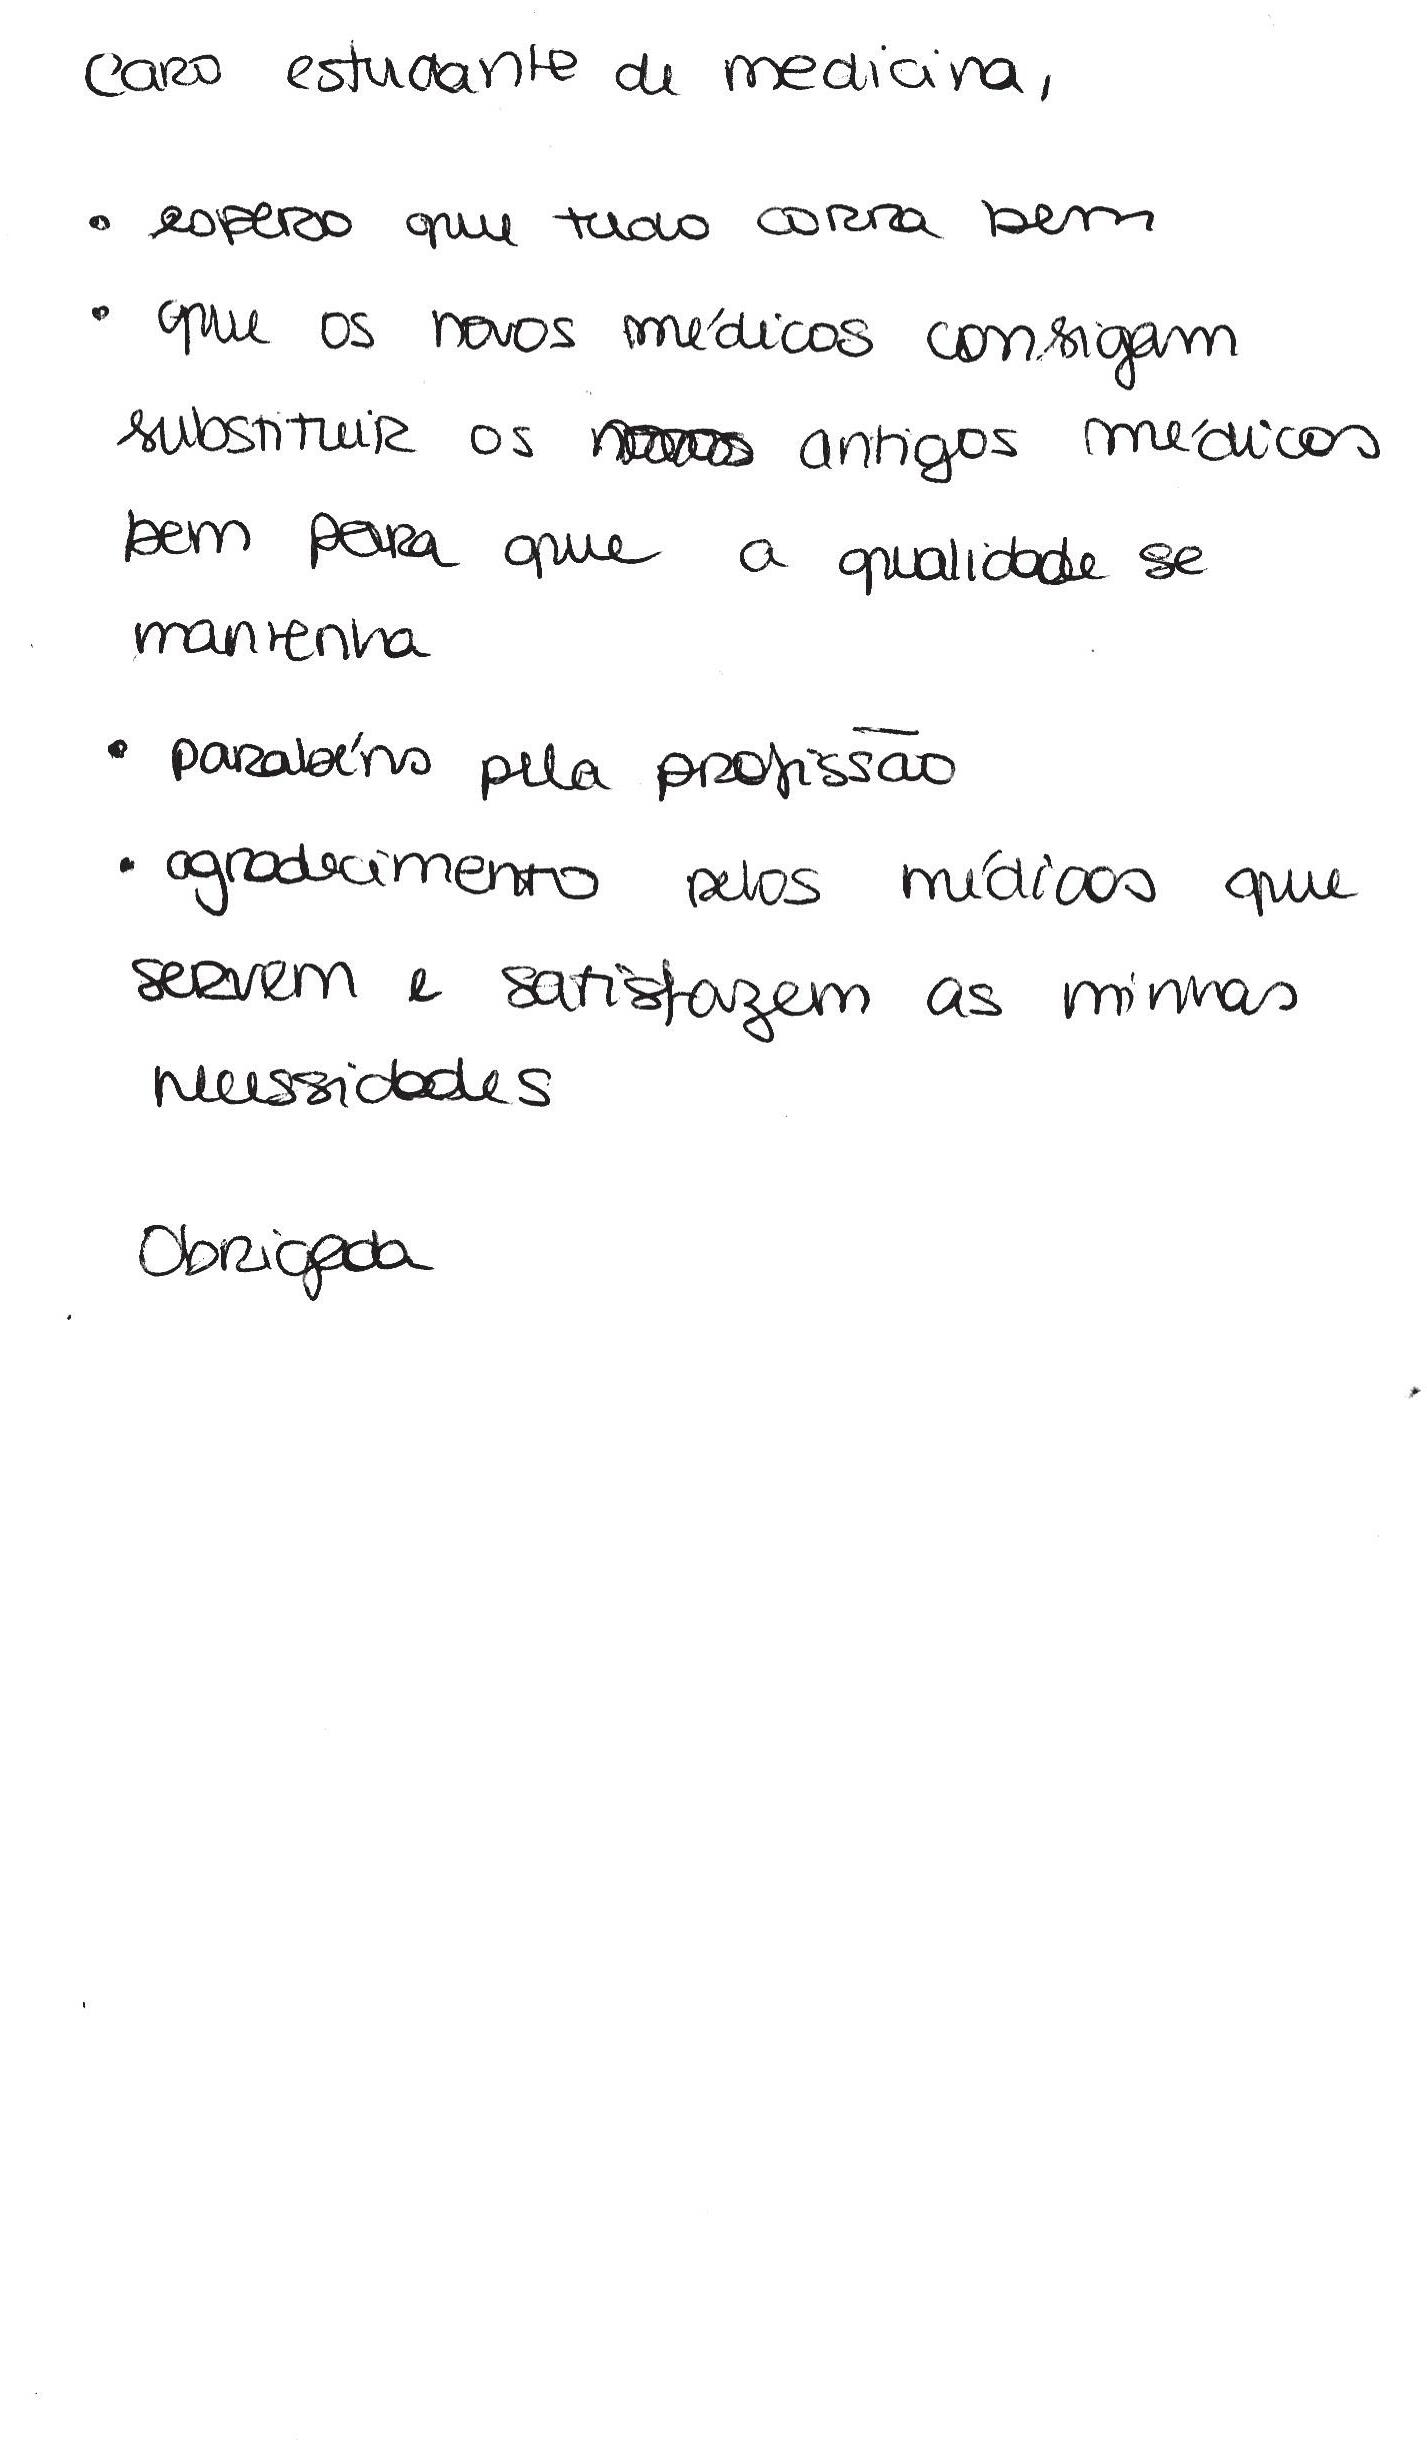 Caro estudante de medicina,
• espero que tudo corra bem
• que os novos médicos consigam
substituir os antigos médicos
bem para que a qualidade se
mantenha
• parabéns pela profissão
• agradecimento pelos médicos que
servem e satisfazem as minhas
necessidades
Obrigada